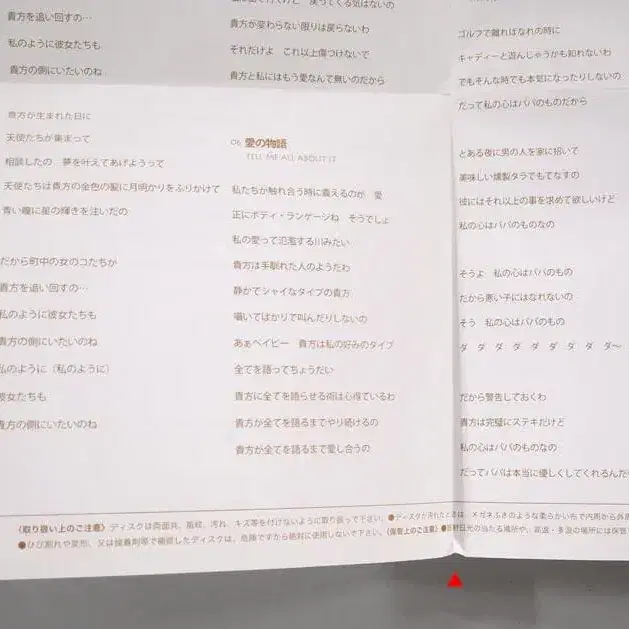 貴方を追い回すの…
私のように彼女たちも
貴方の側にいたいのね
貴方が生まれた日に
天使たちが集まって
相談したの 夢を叶えてあげようって
天使たちは貴方の金色の髪に月明かりをふりかけて
青い瞳に星の輝きを注いだの
だから町中の女のコたちが
貴方を追い回すの…
私のように彼女たちも
貴方の側にいたいのね
私のように(私のように)
彼女たちも
貴方の側にいたいのね
戻ってくる気はないの
貴方が変わらない限りは戻らないわ
それだけよ これ以上傷つけないで
貴方と私にはもう愛なんて無いのだから
06 愛の物語
TELL ME ALL ABOUT IT
私たちが触れ合う時に震えるのが 愛
正にボディ・ランゲージね そうでしょ
私の愛って氾濫する川みたい
貴方は手馴れた人のようだわ
静かでシャイなタイプの貴方
囁いてばかりで叫んだりしないの
あぁベイビー 貴方は私の好みのタイプ
全てを語ってちょうだい
貴方に全てを語らせる術は心得ているわ
貴方が全てを語るまでやり続けるの
貴方が全てを語るまで愛し合うの
ゴルフで離ればなれの時に
キャディーと遊んじゃうかも知れないわ
でもそんな時でも本気になったりしないの
だって私の心はパパのものだから
とある夜に男の人を家に招いて
美味しい燻製タラでもてなすの
彼にはそれ以上の事を求めて欲しいけど
私の心はパパのものなの
そうよ 私の心はパパのもの
だから悪い子にはなれないの
そう 私の心はパパのもの
ダ ダ ダ ダ ダ ダ ダ ダ ダ〜
だから警告しておくわ
貴方は完璧にステキだけど
私の心はパパのものなの
だってパパは本当に優しくしてくれるんだ
〈取り扱い上のご注意〉ディスクは両面共、指紋、汚れ、キズ等を付けないように取り扱って下さい。●ディスクが汚れたときは、メガネふきのような柔らかい布で内周から外周
●ひび割れや変形、又は接着剤等で補修したディスクは、危険ですから絶対に使用しないで下さい。〈保管上のご注意〉●直射日光の当たる場所や、高温・多湿の場所には保管